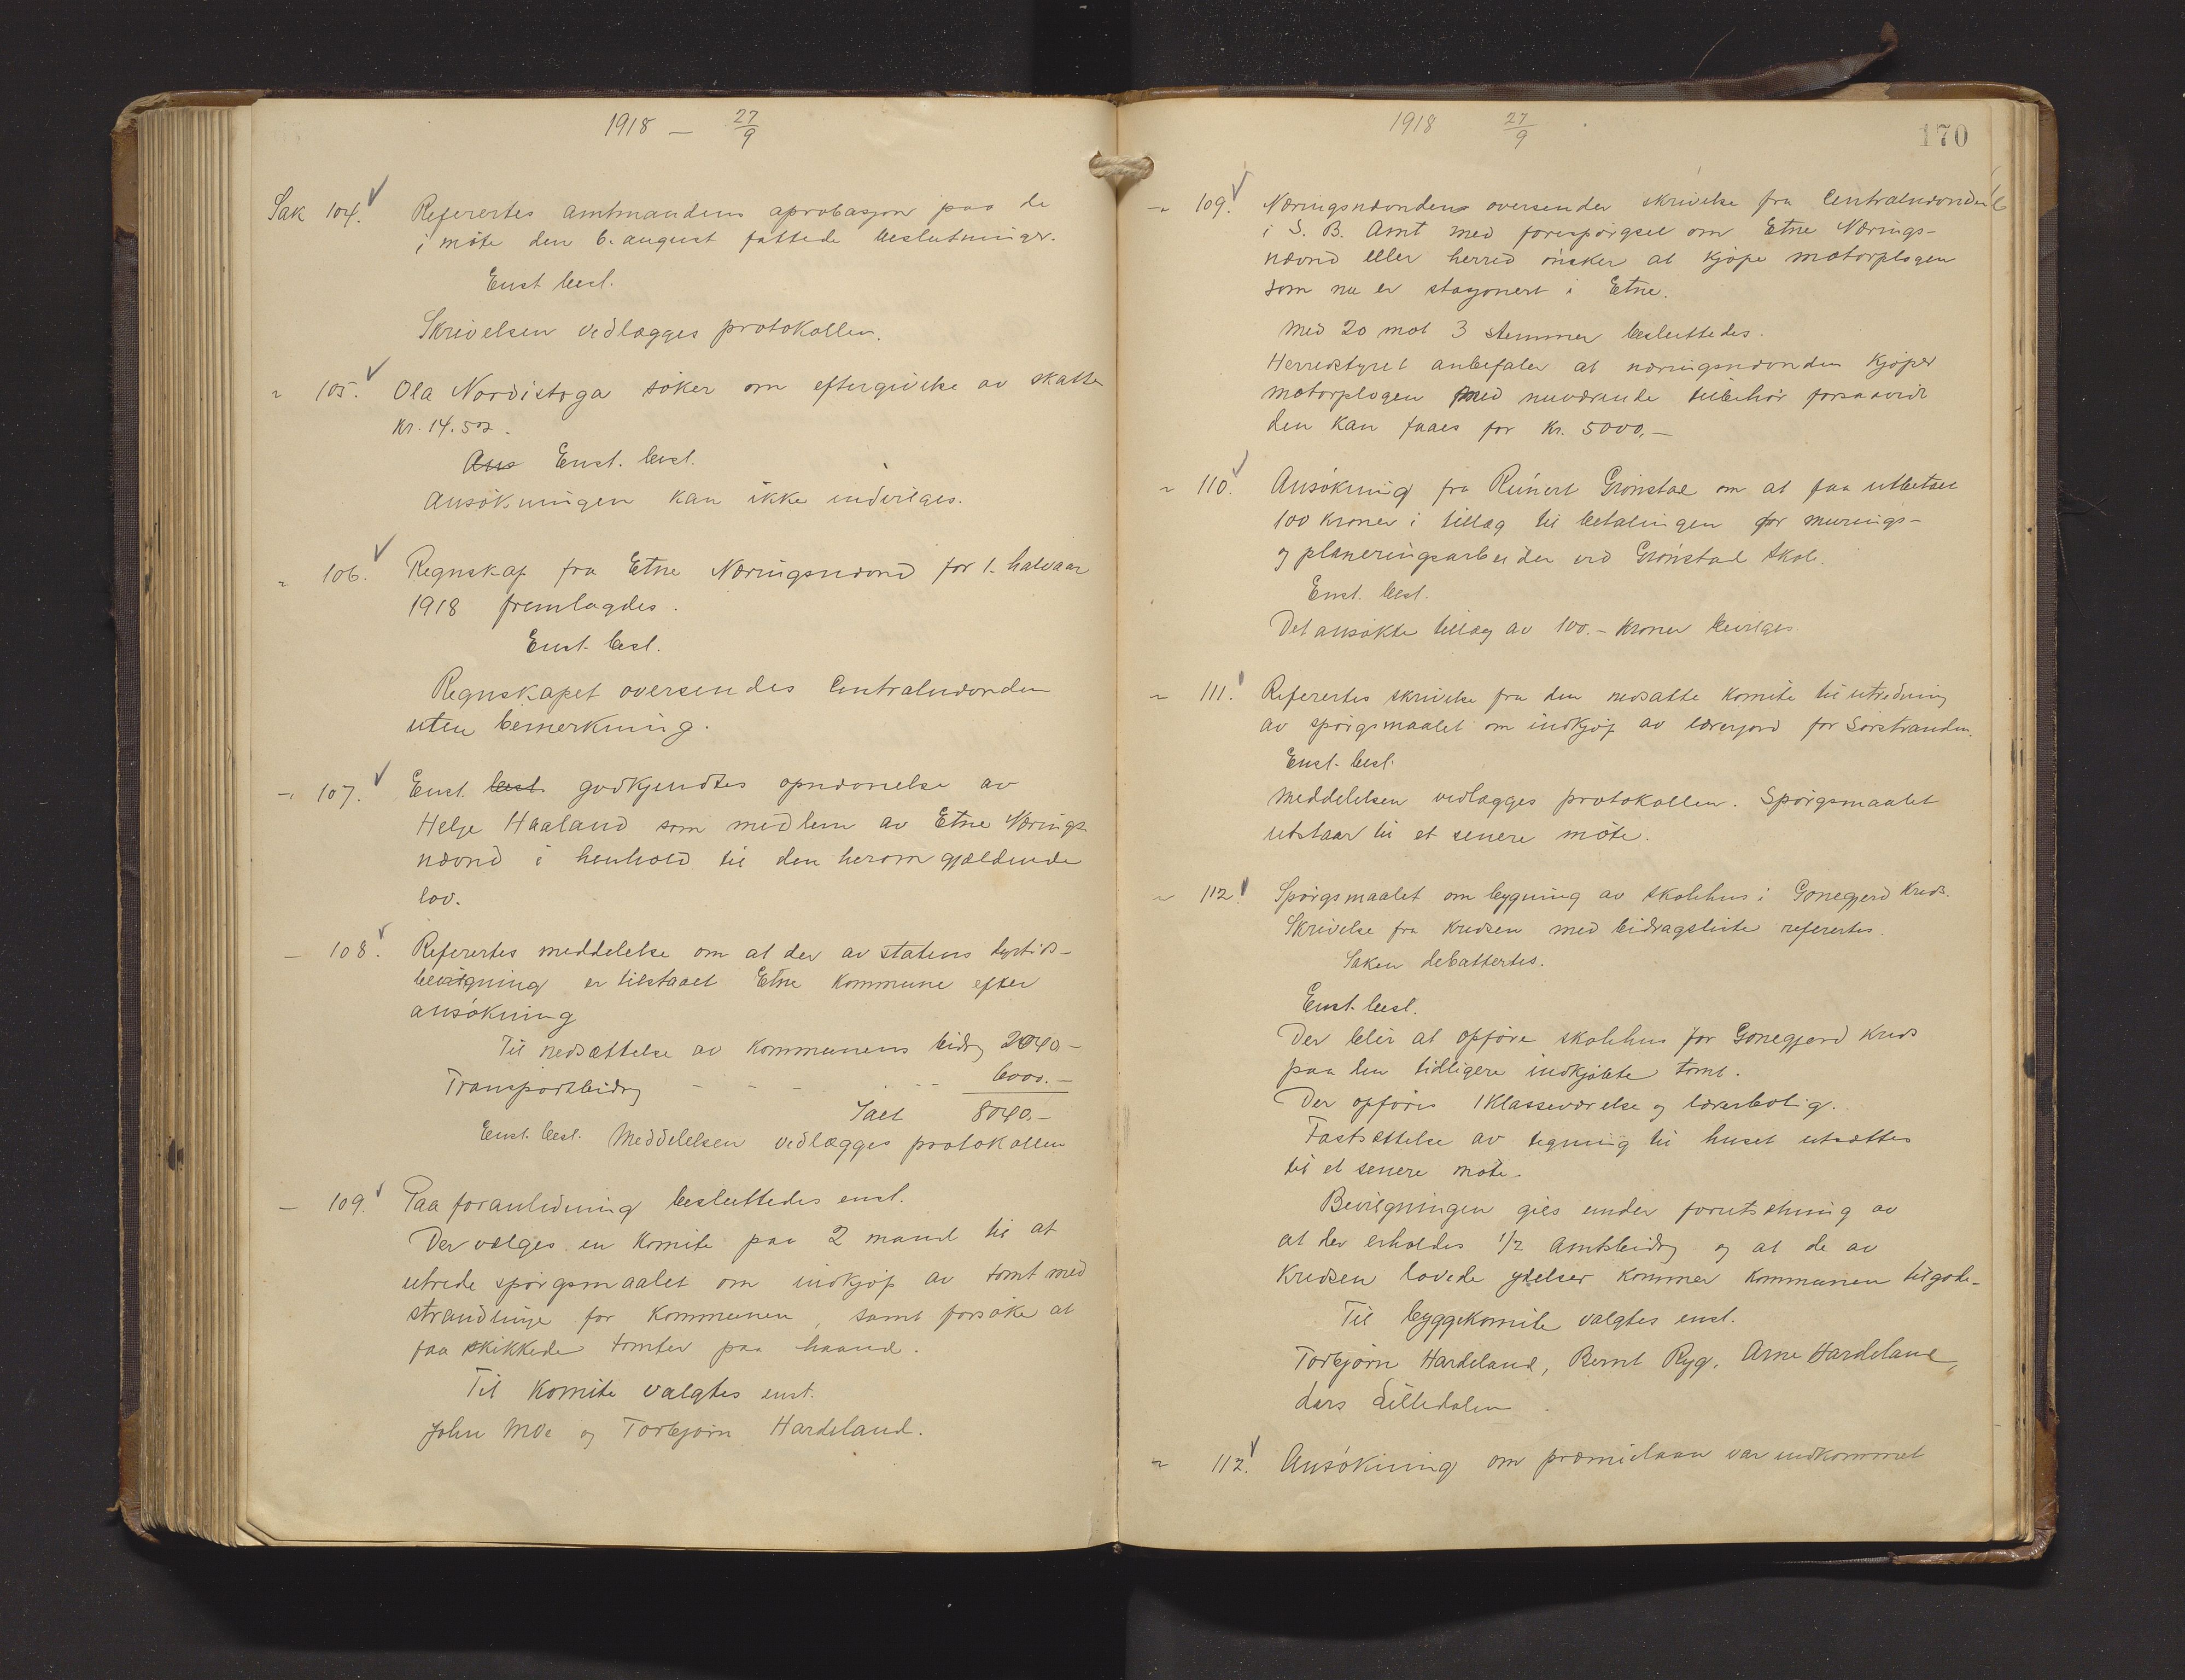 1918 — 27/9
Sak 104. Referertes amtmandens aprobasjon paa de
i møte den 6. august fattede beslutninger.
Enst besl.
Skrivelsen vedlægges protokollen.
" 105. Ola Nordistoga søker om eftergivelse av skatten
Kr. 14.50
Ans Enst. besl.
Ansøkningen kan ikke indvilges.
" 106. Regnskap fra Etne Næringsnævnd for 1. halvaar
1918 fremlagdes.
Enst. besl.
Regnskapet oversendes Centralnævnden
uten bemerkning.
- 107. Enst. besl. godkjendtes opnævnelse av
Helje Haaland som medlem av Etne Nærings-
nævnd i henhold til den herom gjældende
lov.
- 108. Referertes meddelelse om at der av statens dyrtids-
bevilgning er tilstaaet Etne kommune efter
ansøkning
Til nedsættelse av kommunens bidrag 2040.-
Transportbidrag - - - - - 6000.-
Ialt 8040.-
Enst. besl. Meddelelsen vedlægges protokollen
- 109. Paa foranledning besluttedes enst.
Der vælges en komite paa 2 mand til at
utrede spørgsmaalet om indkjøp av tomt med
strandlinje for kommunen, samt forsøke at
faa skikkede tomter paa haand.
Til komite valgtes enst.
John Moe og Torbjørn Hardeland.
1918 27/9
170
- 109. Næringsnævnden oversender skrivelse fra Centralnævnden
i S. B. Amt med forespørgsel om Etne Nærings-
nævnd eller herred ønsker at kjøpe motorplogen
som nu er stasjonert i Etne.
Med 20 mot 3 stemmer besluttedes.
Herredstyret anbefaler at næringsnævnden kjøper
motorplogen med nuværende tilbehør forsaavidt
den kan faaes for Kr. 5000,-
" 110. Ansøkning fra Reinert Grønstad om at faa utbetalt
100 kroner i tillæg til betalingen for murings-
og planeringsarbeider ved Grønstad skole.
Enst. besl.
Det ansøkte tillæg av 100.- kroner bevilges
" 111. Referertes skrivelse fra den nedsatte komite til utredning
av spørgsmaalet om indkjøp av lærerjord for Sørstranden.
Enst. besl.
Meddelelsen vedlægges protokollen. Spørgsmaalet
utstaar til et senere møte.
" 112. Spørgsmaalet om bygning av skolehus i Gonegjerd kreds.
Skrivelse fra kredsen med bidragsliste referertes.
Saken debattertes.
Enst. besl.
Der blir at opføre skolehus for Gonegjerd kreds
paa den tidligere indkjøbte tomt.
Der opføres 1 klasseværelse og lærerbolig.
Fastsættelse av tegning til huset utsættes
til et senere møte.
Bevilgningen gies under forutsætning av
at der erholdes 1/2 Amtsbidrag og at de av
kredsen lovede ydelser kommer kommunen tilgode.
Til byggekomite valgtes enst.
Torbjørn Hardeland, Bernt Ryg, Arne Hardeland,
Lars Lilledalen.
" 112. Ansøkning om præmielaan var indkommet